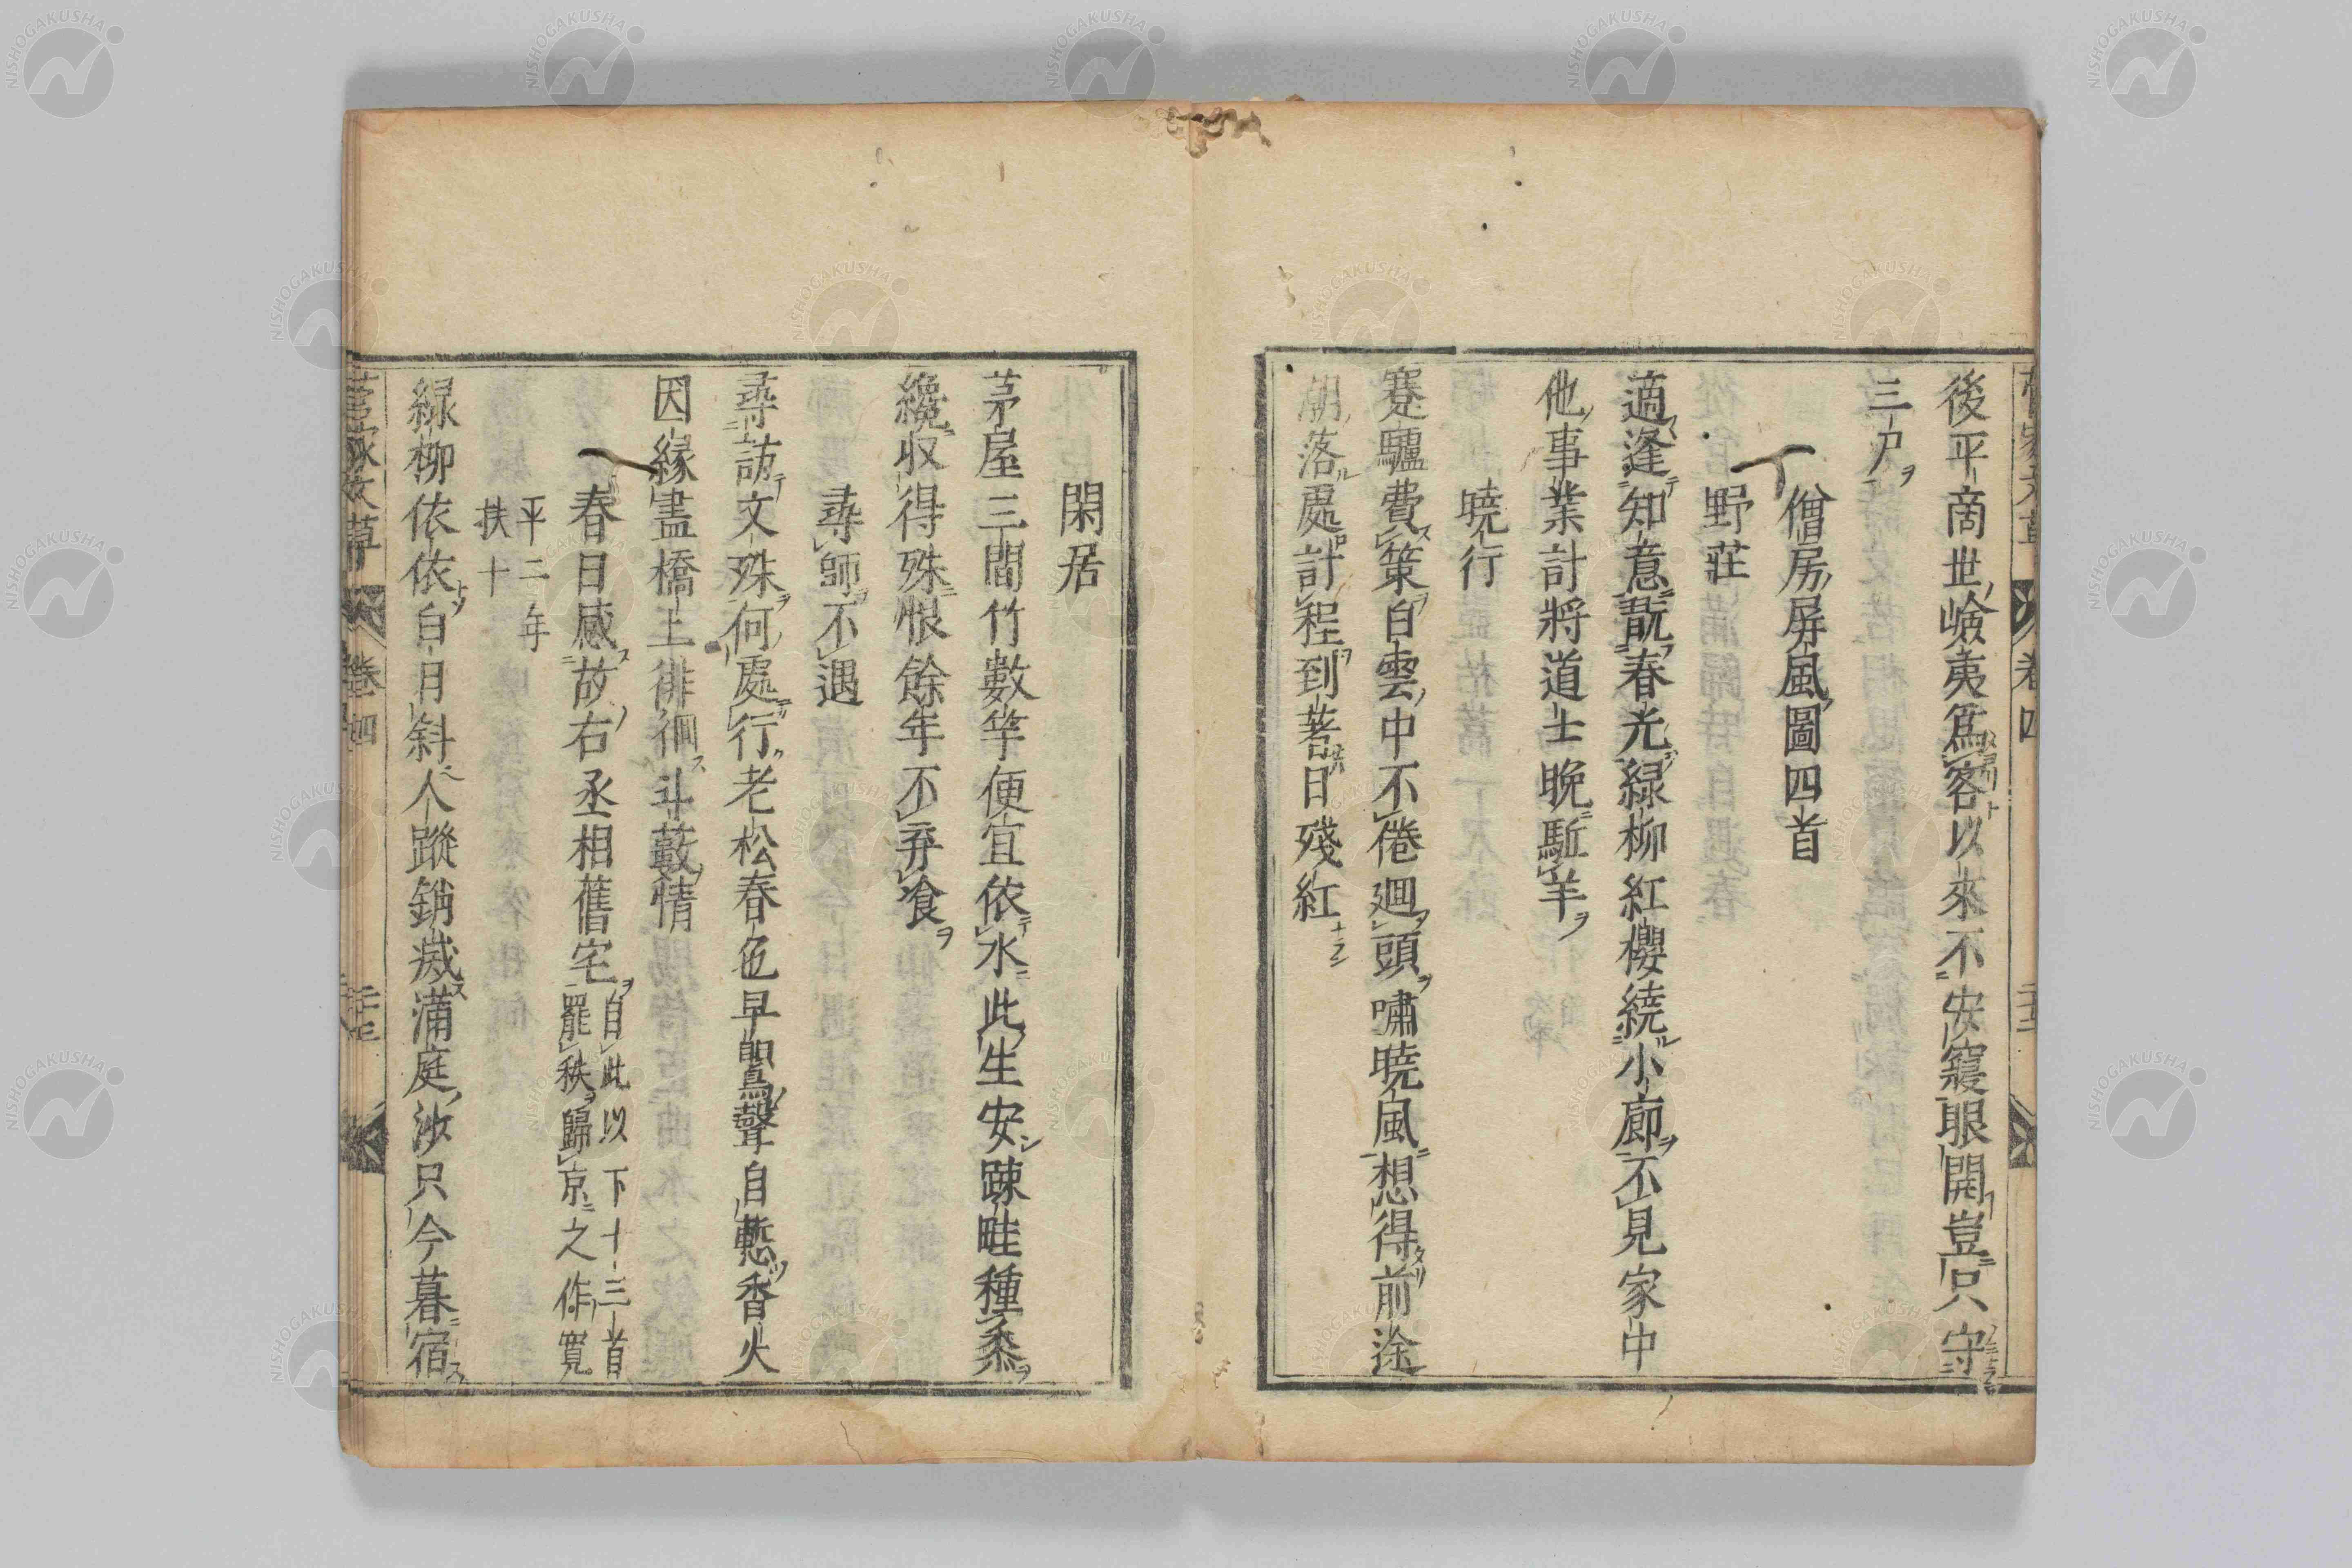 後平商世嶮夷爲客以來不安寢眼開豈只守
三尸
僧房屏風圖四首
野莊
適逢知意翫春光綠柳紅櫻繞小廊不見家中
他事業計將道士晩駈羊
曉行
蹇驢費策白雲中不倦廻頭嘯曉風想得前途
朝落處計程到菩日殘紅
閑居
茅屋三間竹數竿便宜依水此生安踈畦種黍
纔收得殊恨餘年不弃飡
尋師不遇
尋訪文殊何處行老松春色早鸎聲自慙香火
因緣盡橋上徘徊斗藪情
春日感故右丞相舊宅
自此以下十三首
罷秩歸京之作寬
平二年
扶十
綠柳依依白日斜人蹤銷滅滿庭沙只今暮宿
菅家文草 卷四
NISHOGAKUSHA